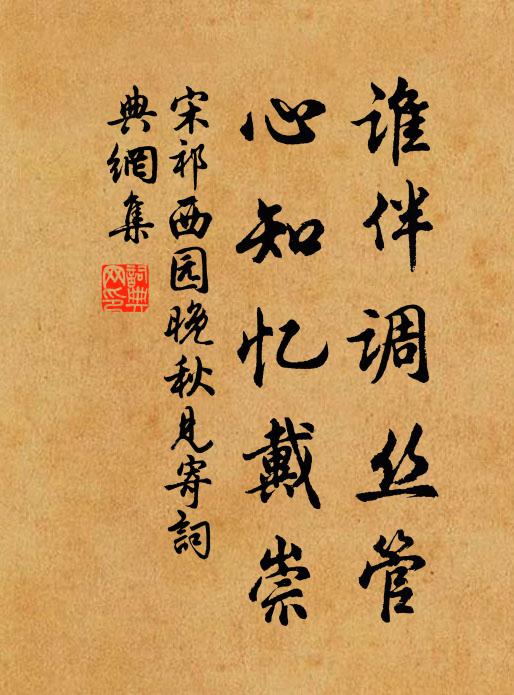 谁伴调丝管
心知忆戴崇
宋祁西园晚秋见寄詞
典網集
詞典
网印